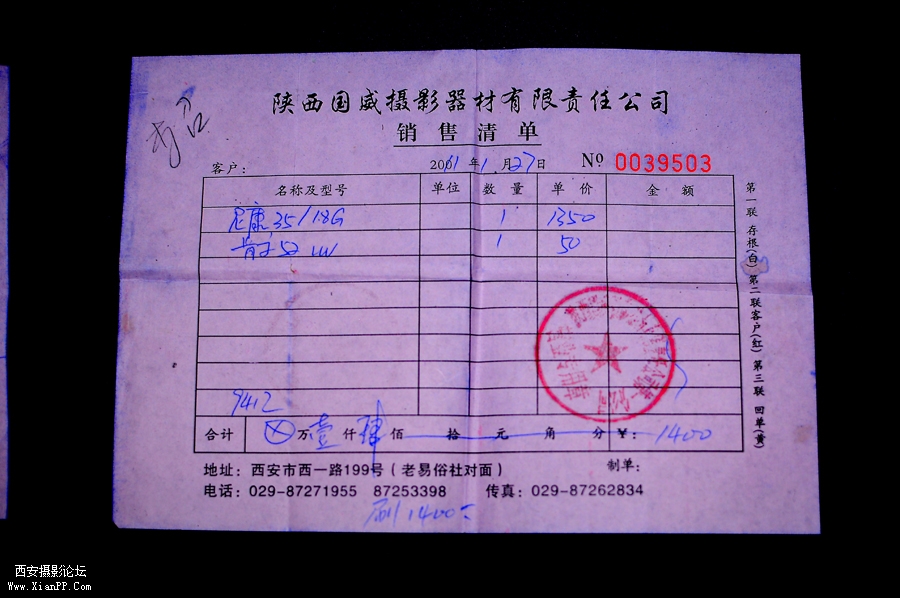 陕西国威摄影器材有限责任公司
销售清单
客户: 2011年1月27日 Nº 0039503
名称及型号 单位 数量 单价 金额
尼康 35/18G 1 1350
肯子 52 UV 1 50
9412
合计 ⊗万壹仟肆佰 拾 元 角 分 ¥: 1400
第一联 存根(白) 第二联客户(红) 第三联 回单(黄)
地址: 西安市西一路199号(老易俗社对面) 制单:
电话: 029-87271955 87253398 传真: 029-87262834
刷1400
西安摄影论坛
Www.XianPP.Com